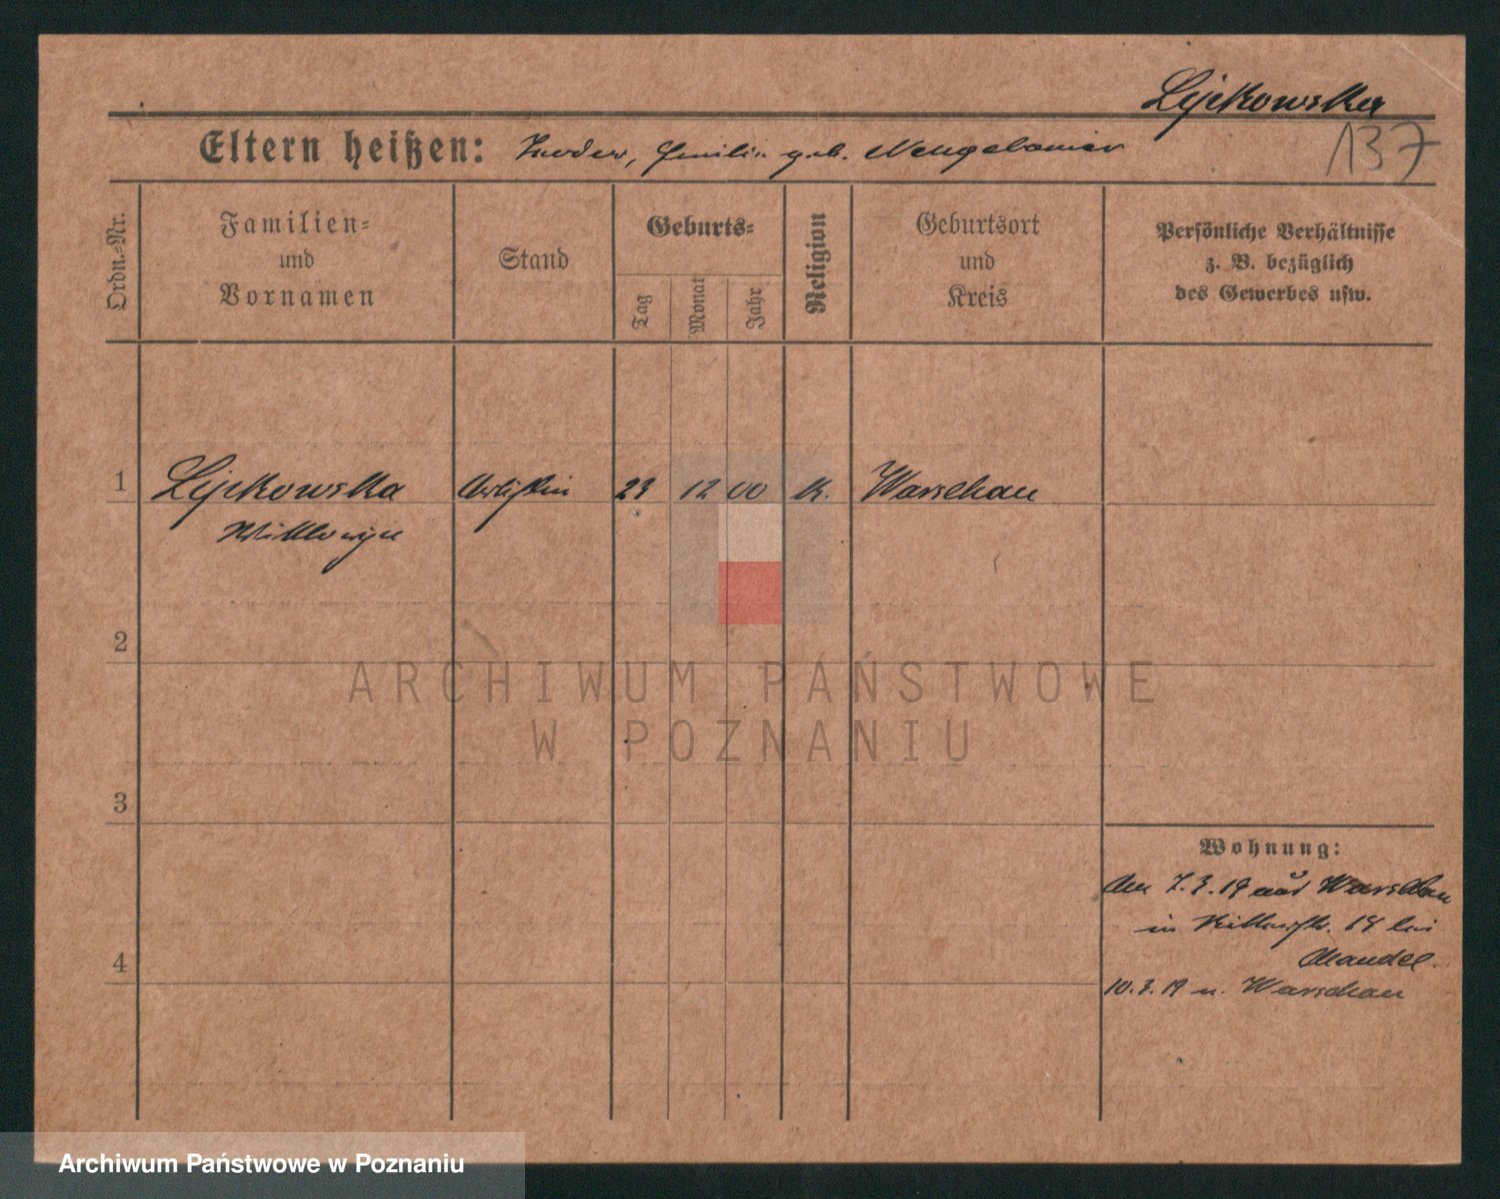 Lipkowska
137
Eltern heißen: geb.
Ordn.-Nr.
Familien-
und
Vornamen
Stand
Geburts-
Tag
Monat
Jahr
Religion
Geburtsort
und
Kreis
Persönliche Verhältnisse
z. B. bezüglich
des Gewerbes usw.
1 Lipkowska Artistin 23 12 00 K. Warschau
2
3
4
Wohnung:
7.3.19 aus Warschau
in 18 bei
Mandel.
10.3.19 n. Warschau
ARCHIWUM PAŃSTWOWE
W POZNANIU
Archiwum Państwowe w Poznaniu